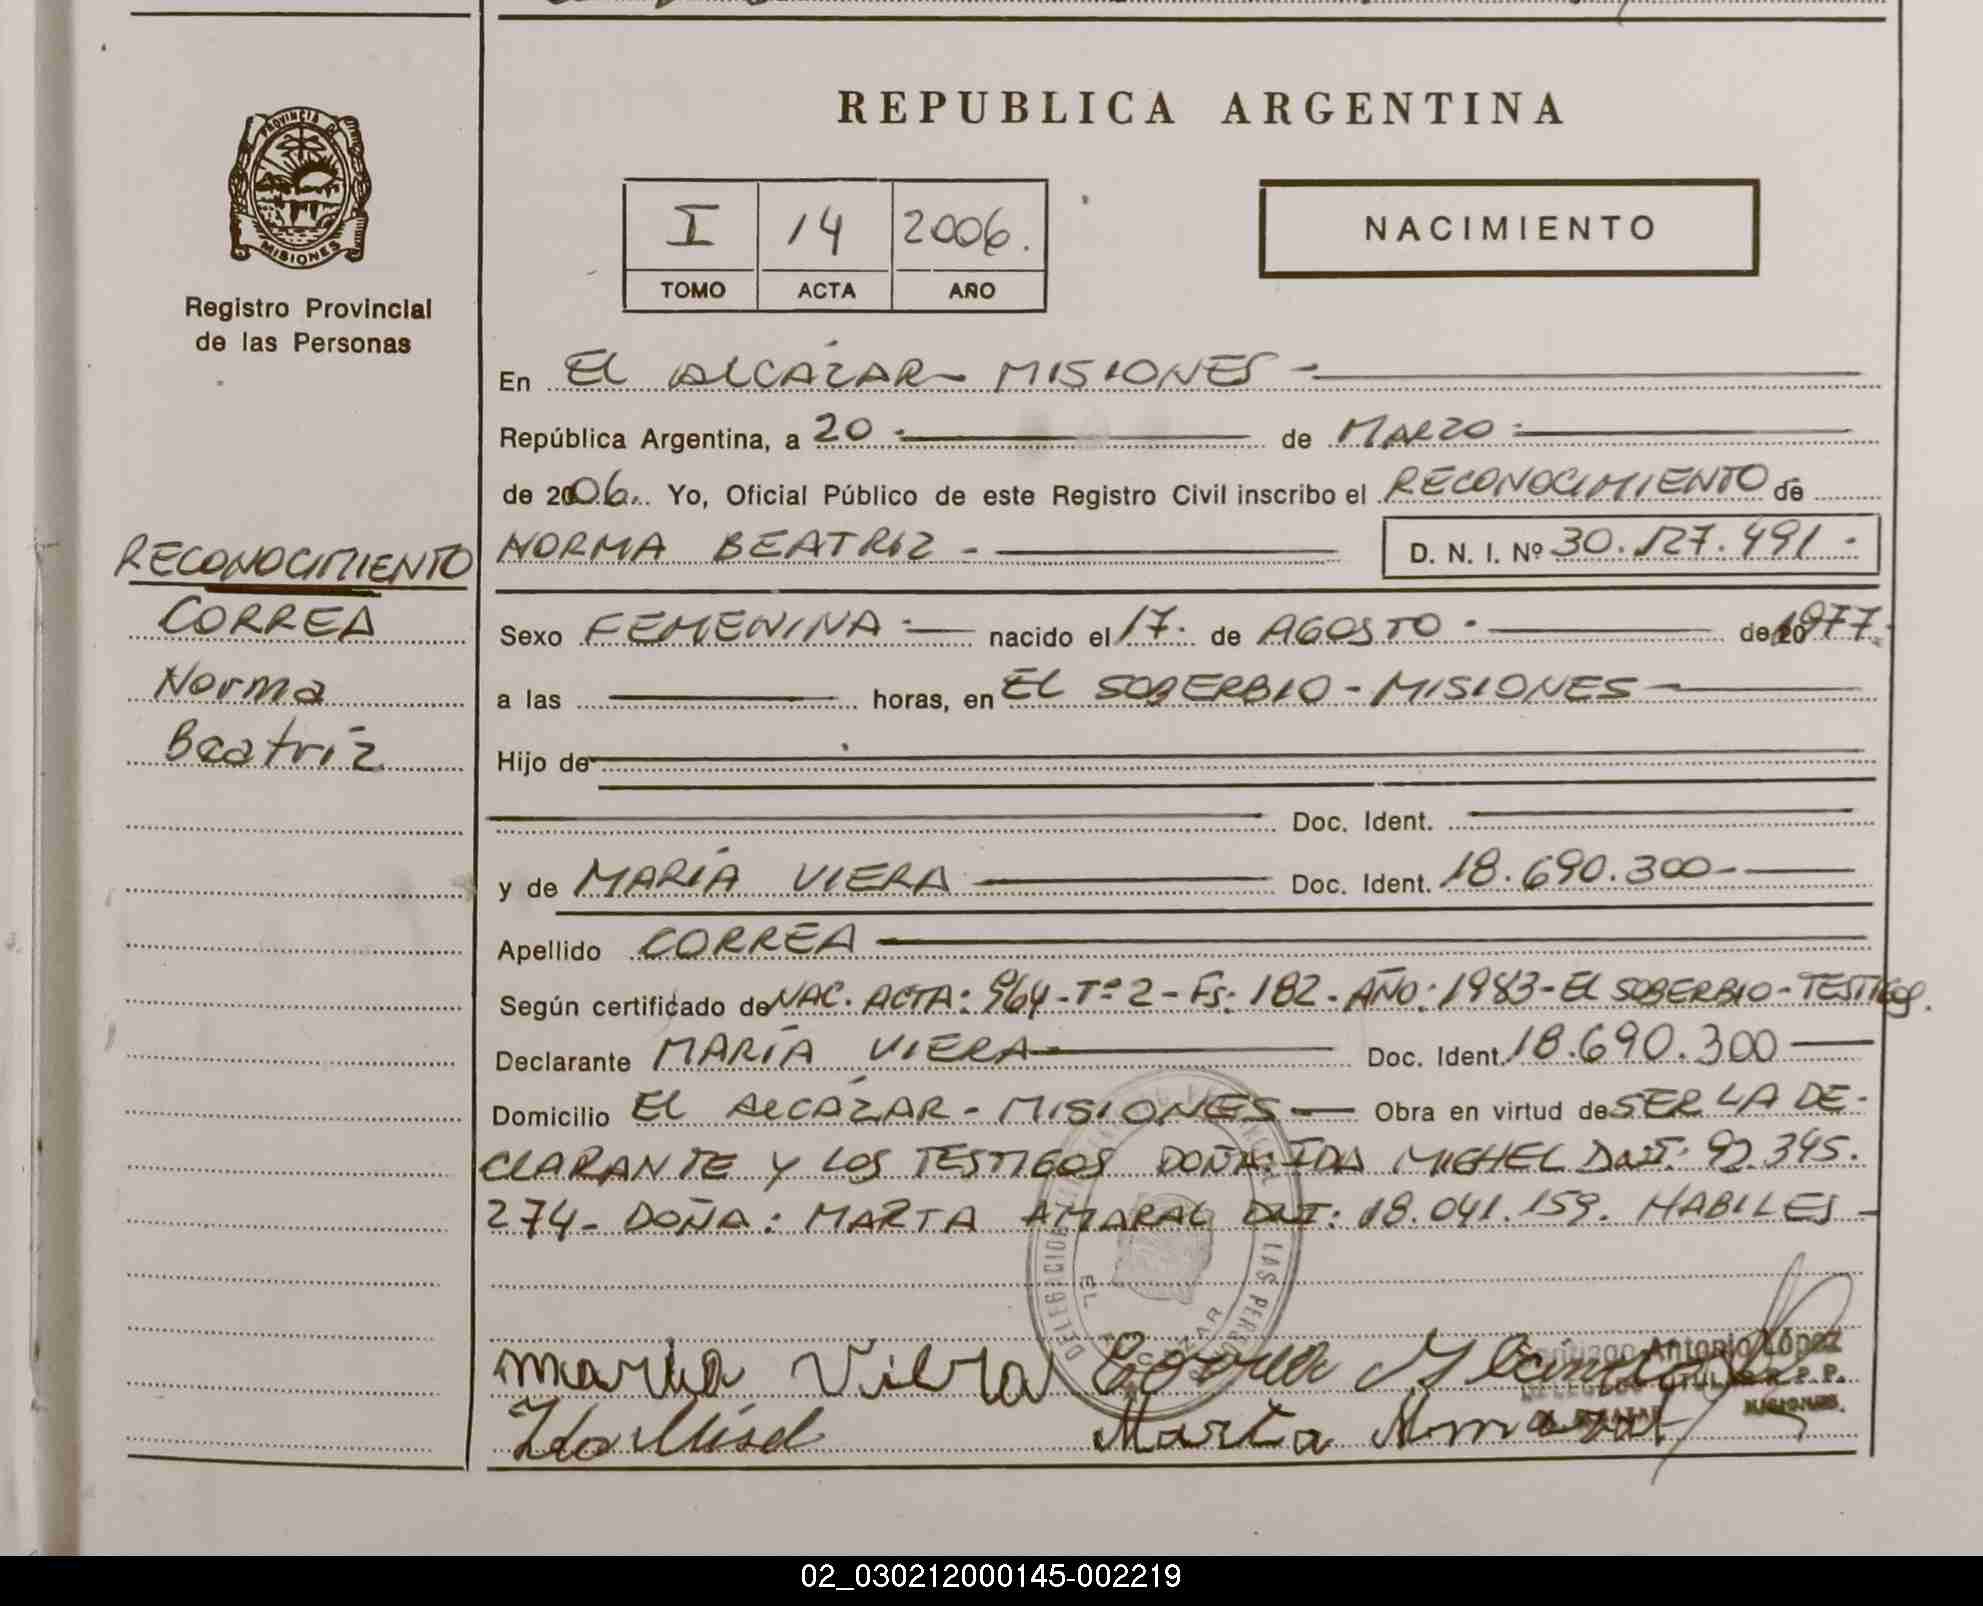 PROVINCIA DE
MISIONES
Registro Provincial
de las Personas
REPUBLICA ARGENTINA
I 14 2006.
TOMO ACTA AÑO
NACIMIENTO
En EL ALCÁZAR - MISIONES -
República Argentina, a 20 - de MARZO -
de 2006. Yo, Oficial Público de este Registro Civil inscribo el RECONOCIMIENTO de
NORMA BEATRIZ - D. N. I. Nº 30.127.491 -
RECONOCIMIENTO
CORREA
Norma
Beatríz
Sexo FEMENINA - nacido el 17. de AGOSTO - de 1977.
a las horas, en EL SOBERBIO - MISIONES -
Hijo de
Doc. Ident.
y de MARÍA VIERA Doc. Ident. 18.690.300 -
Apellido CORREA
Según certificado de NAC. ACTA: 964 - Tº 2 - Fs: 182 - AÑO: 1983 - EL SOBERBIO - TESTIGOS.
Declarante MARÍA VIERA Doc. Ident. 18.690.300
Domicilio EL ALCÁZAR - MISIONES - Obra en virtud de SER LA DE-
CLARANTE Y LOS TESTIGOS DOÑA: IDA MICHEL DNI: 92.345.
274 - DOÑA: MARTA AMARAL DNI: 18.041.159. HABILES -
LAS PERSONAS
EL ALCAZAR
maria Viera
Antonio López
TITULAR R.P.P.
MISIONES
Marta
02_030212000145-002219